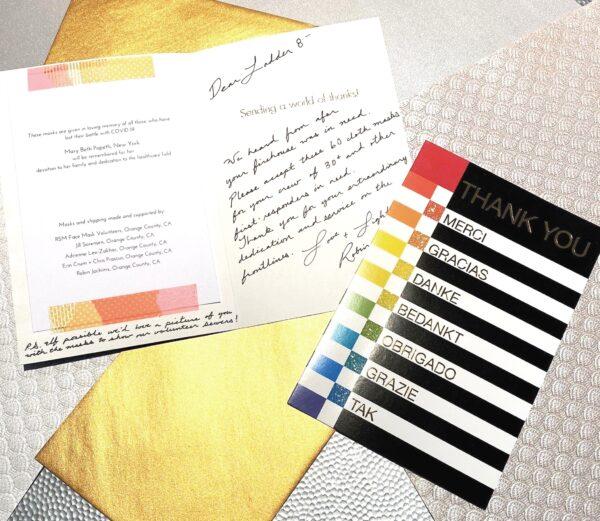 These masks are given in loving memory of all those who have
lost their battle with COVID-19.
Mary Beth Papetti, New York
will be remembered for her
devotion to her family and dedication to the healthcare field.
Masks and shipping made and supported by
RSM Face Mask Volunteers, Orange County, CA
Jill Sorensen, Orange County, CA
Adrienne Lev-Zakher, Orange County, CA
Erin Crum + Chris Preston, Orange County, CA
Robin Jackins, Orange County, CA
P.S. If possible we'd love a picture of you
with the masks to show our volunteer sewers!
Dear Ladder 8-
Sending a world of thanks!
We heard from afar
your firehouse was in need.
Please accept these 60 cloth masks
for your crew of 30+ and other
first-responders in need.
Thank you for your extraordinary
dedication and service on the
frontlines. Love + Light,
Robin
THANK YOU
MERCI
GRACIAS
DANKE
BEDANKT
OBRIGADO
GRAZIE
TAK